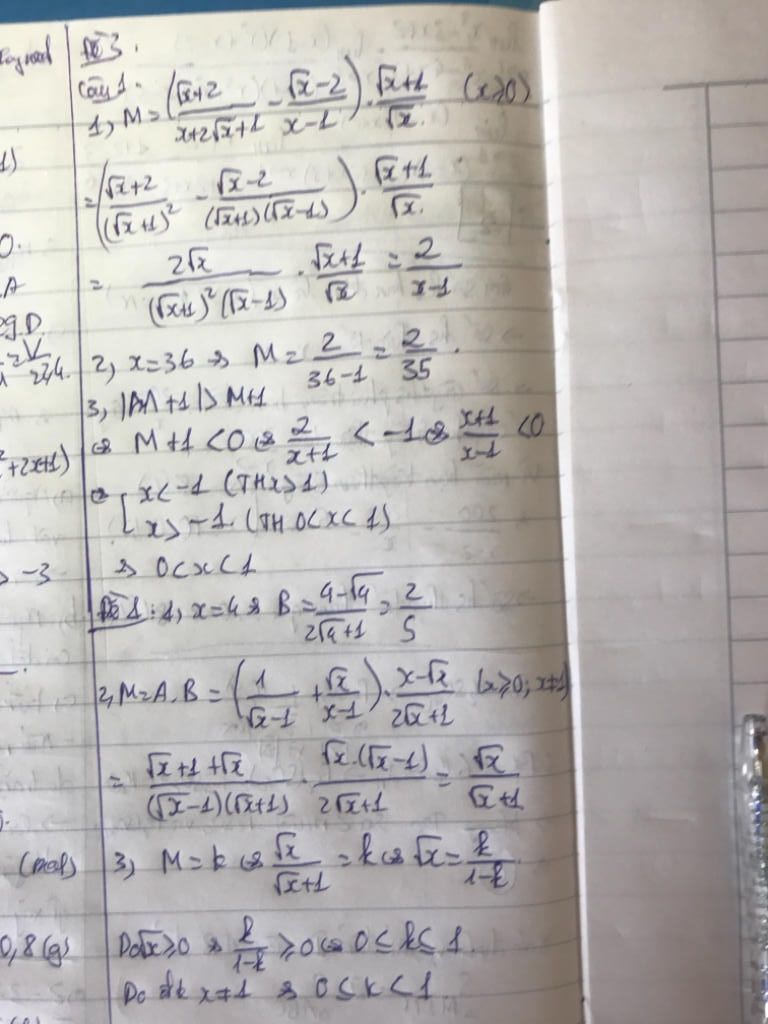 Đề 3.
Câu 1.
1, M = (√x+2 / x+2√x+1 - √x-2 / x-1) . √x+1 / √x (x≥0)
= (√x+2 / (√x+1)² - √x-2 / (√x+1)(√x-1)) . √x+1 / √x
= 2√x / (√x+1)²(√x-1) . √x+1 / √x = 2 / x-1
2, x=36 ⇒ M = 2 / 36-1 = 2 / 35.
3, |M+1| > M+1
⇔ M+1 < 0 ⇔ 2 / x+1 < -1 ⇔ x+1 / x-1 < 0
⇔ [ x < -1 (TH x>1)
x > -1. (TH 0<x<1)
⇒ 0<x<1
Đề 1: 1, x=4 ⇒ B = 4-√4 / 2√4+1 = 2 / 5
2, M=A.B = (1 / √x-1 + √x / x-1) . x-√x / 2√x+1 (x≥0; x≠1)
= √x+1+√x / (√x-1)(√x+1) . √x.(√x-1) / 2√x+1 = √x / √x+1
3, M=k ⇔ √x / √x+1 = k ⇔ √x = k / 1-k
Do √x≥0 ⇒ k / 1-k ≥ 0 ⇔ 0 ≤ k ≤ 1.
Do đk x≠1 ⇒ 0 ≤ k < 1
1)
0.
.A
g D.
²+2x+1)
> -3
0,8(g)